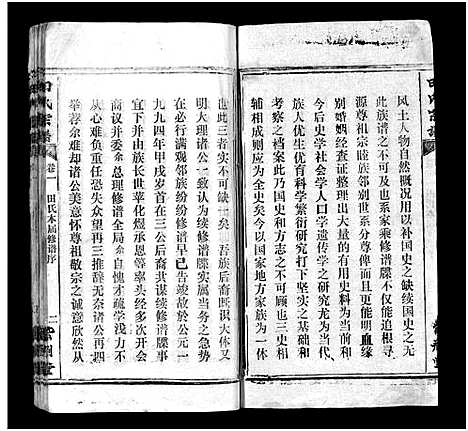 风土人物自然概况用以补国史之缺续国史之无
此族谱之不可及也系家乘修谱不仅能追根寻
源尊祖宗睦族邻别世系分尊俾而且更能明血缘
别婚姻经查证整理出大量的有用史料为当前和
今后史学社会学人口学遗传学之研究尤为当代
族人优生优育科学研究和创造史前史和
考察之档案此乃国史和方志之不可顾也三史相
辅相成则应为全史矣今以国家地方家族为一体
也此三者实不可缺一矣 吾族后裔既识大体又
明大理诸公一致认为续修谱牒实属当务之急势
在必行满观邻族纷纷续修谱早已告竣故於公元一
九九四年甲戌岁首在三公后裔共谋续修谱牒事
宜并由族长世華化煜承恩等率头经多次开会
商议并委余总理修谱全局余自愧才疏学浅力不
从心难负重任恐失众望再三推辞无奈诸公再四
举荐余难却诸公美意怀尊祖敬宗之诚意欣然从
田氏宗谱
卷一
田氏本届修谱序
二
紫荆堂